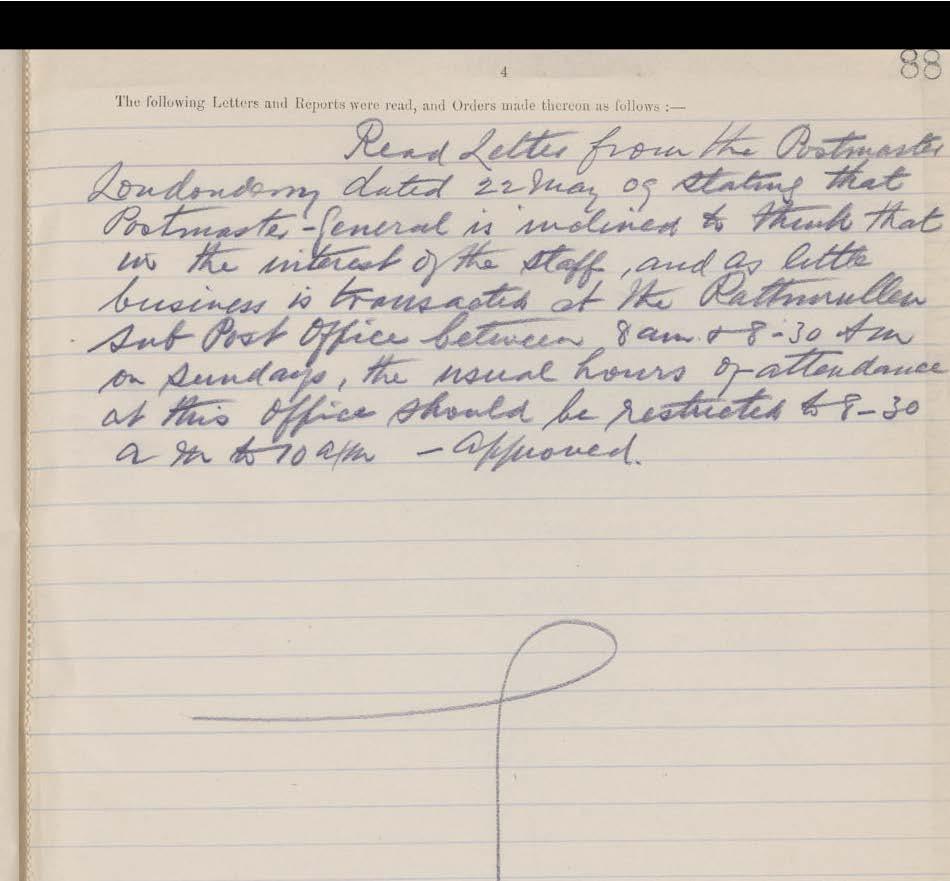 4
88
The following Letters and Reports were read, and Orders made thereon as follows :—
Read Letter from the Postmaster
Londonderry dated 22 May 09 stating that
Postmaster-General is inclined to think that
in the interest of the staff, and as little
business is transacted at the Rathmullen
Sub Post Office between 8 am & 8-30 Am
on Sundays, the usual hours of attendance
at this Office should be restricted to 8-30
a m to 10 a/m – Approved.